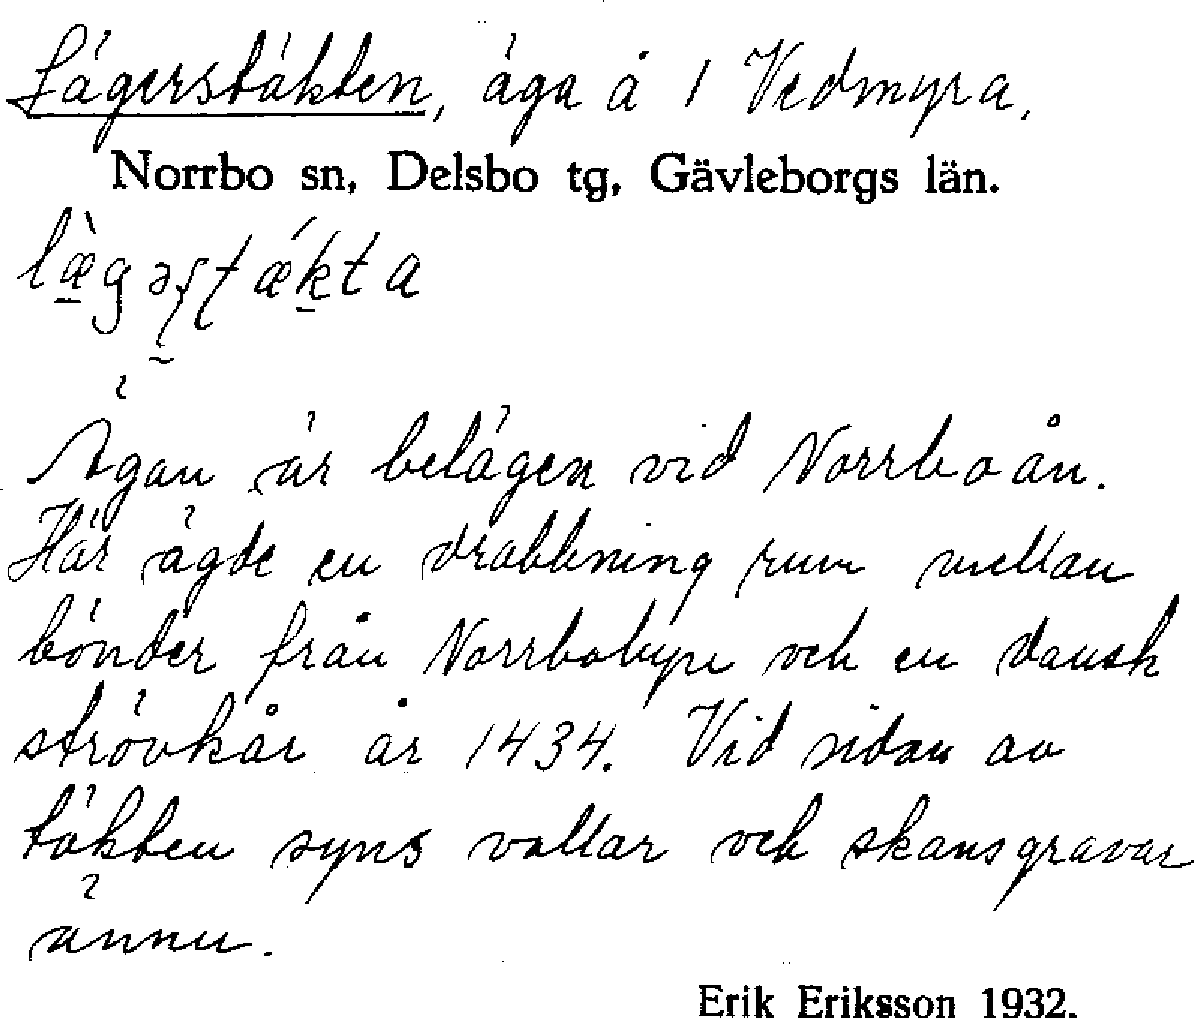 Lägerstäkten, äga å 1 Vedmyra.
Norrbo sn, Delsbo tg, Gävleborgs län.
Ägan är belägen vid Norrboån.
Här ägde en drabbning rum mellan
bönder från Norrbobyn och en dansk
strövkår år 1434. Vid sidan av
täkten syns vallar och skansgravar
ännu.
Erik Eriksson 1932.